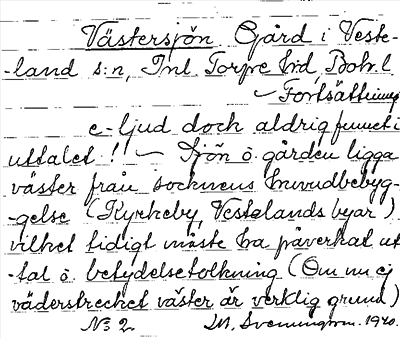 Västersjön Gård i Veste-
-land s:n, Inl. Torpe hrd, Boh. l.
~ Fortsättning
e-ljud doch aldrig funnet i
uttalet! ~ Sjön o. gården ligga
väster från socknens huvudbebyg-
-gelse (Kyrkeby, Vestelands byar)
vilket tidigt måste ha påverkat ut-
-tal o. betydelsetolkning (Om nu ej
väderstrecket väster är verklig grund)
No 2 M. Svenningson. 1940.